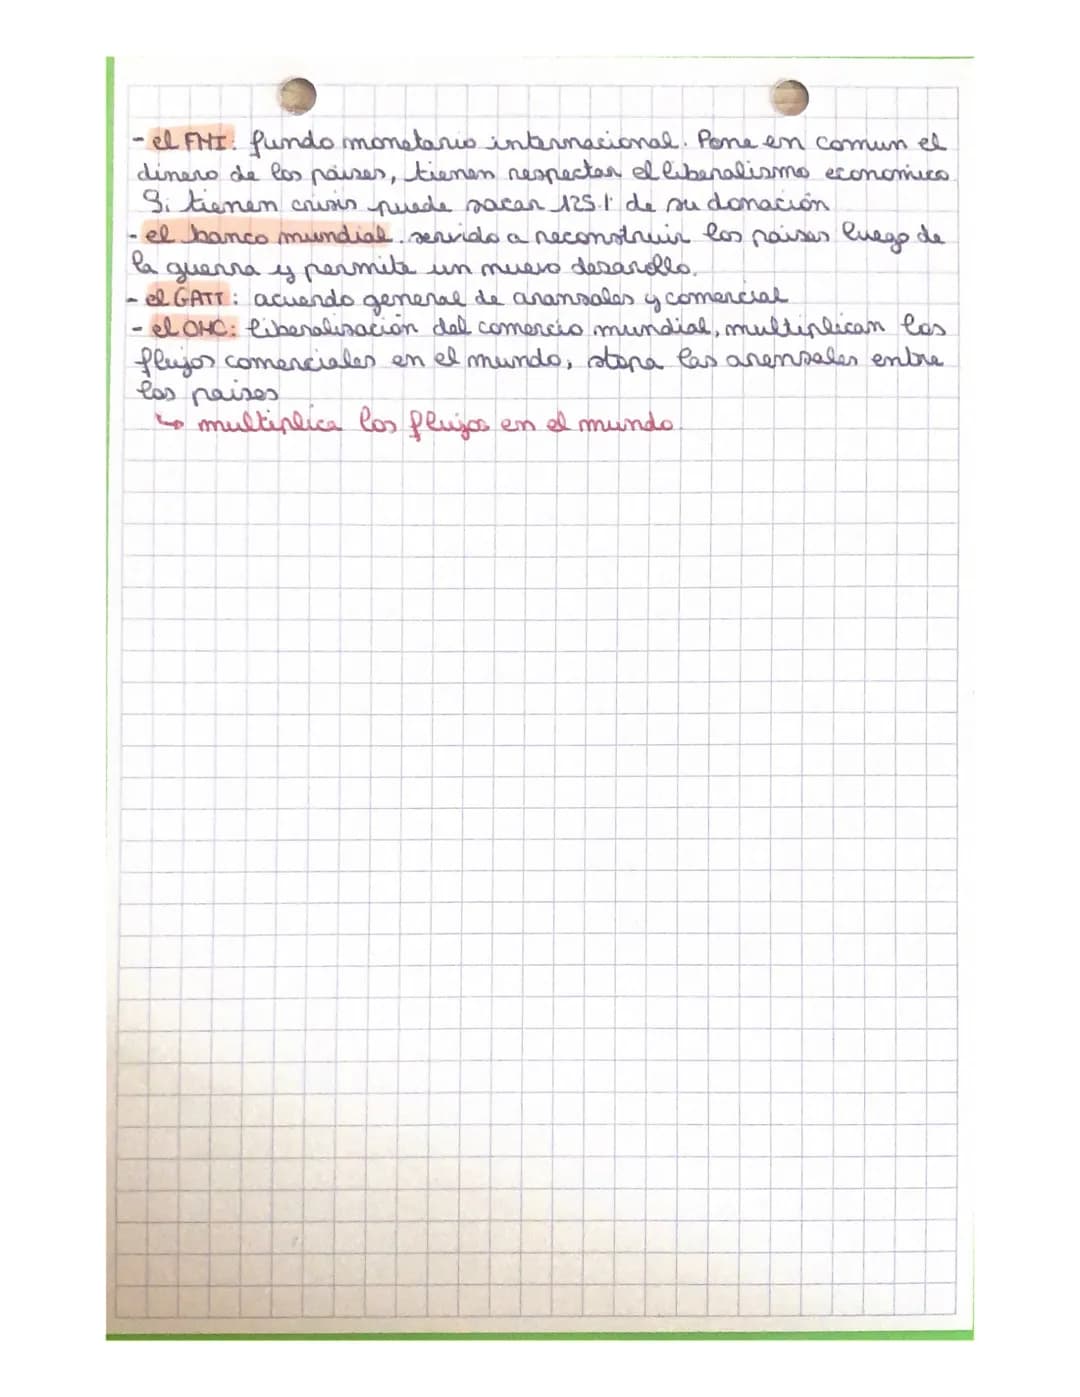 - el FMI: fundo monetario internacional. Pone en comun el
dinero de los païses, tienen respectar el liberalismo economico
Si tienen crisis puede sacar 125% de su donación
- el banco mundial. servido a reconstruir los païses luego de
la guerra y permite un nuevo desarollo.
- el GATT: acuerdo general de aransales y comercial
- el OMC: liberalisación del comercio mundial, multiplican los
flujos comerciales en el mundo, stopa las arensales entre
los païses
↳ multiplica los flujos en el mundo